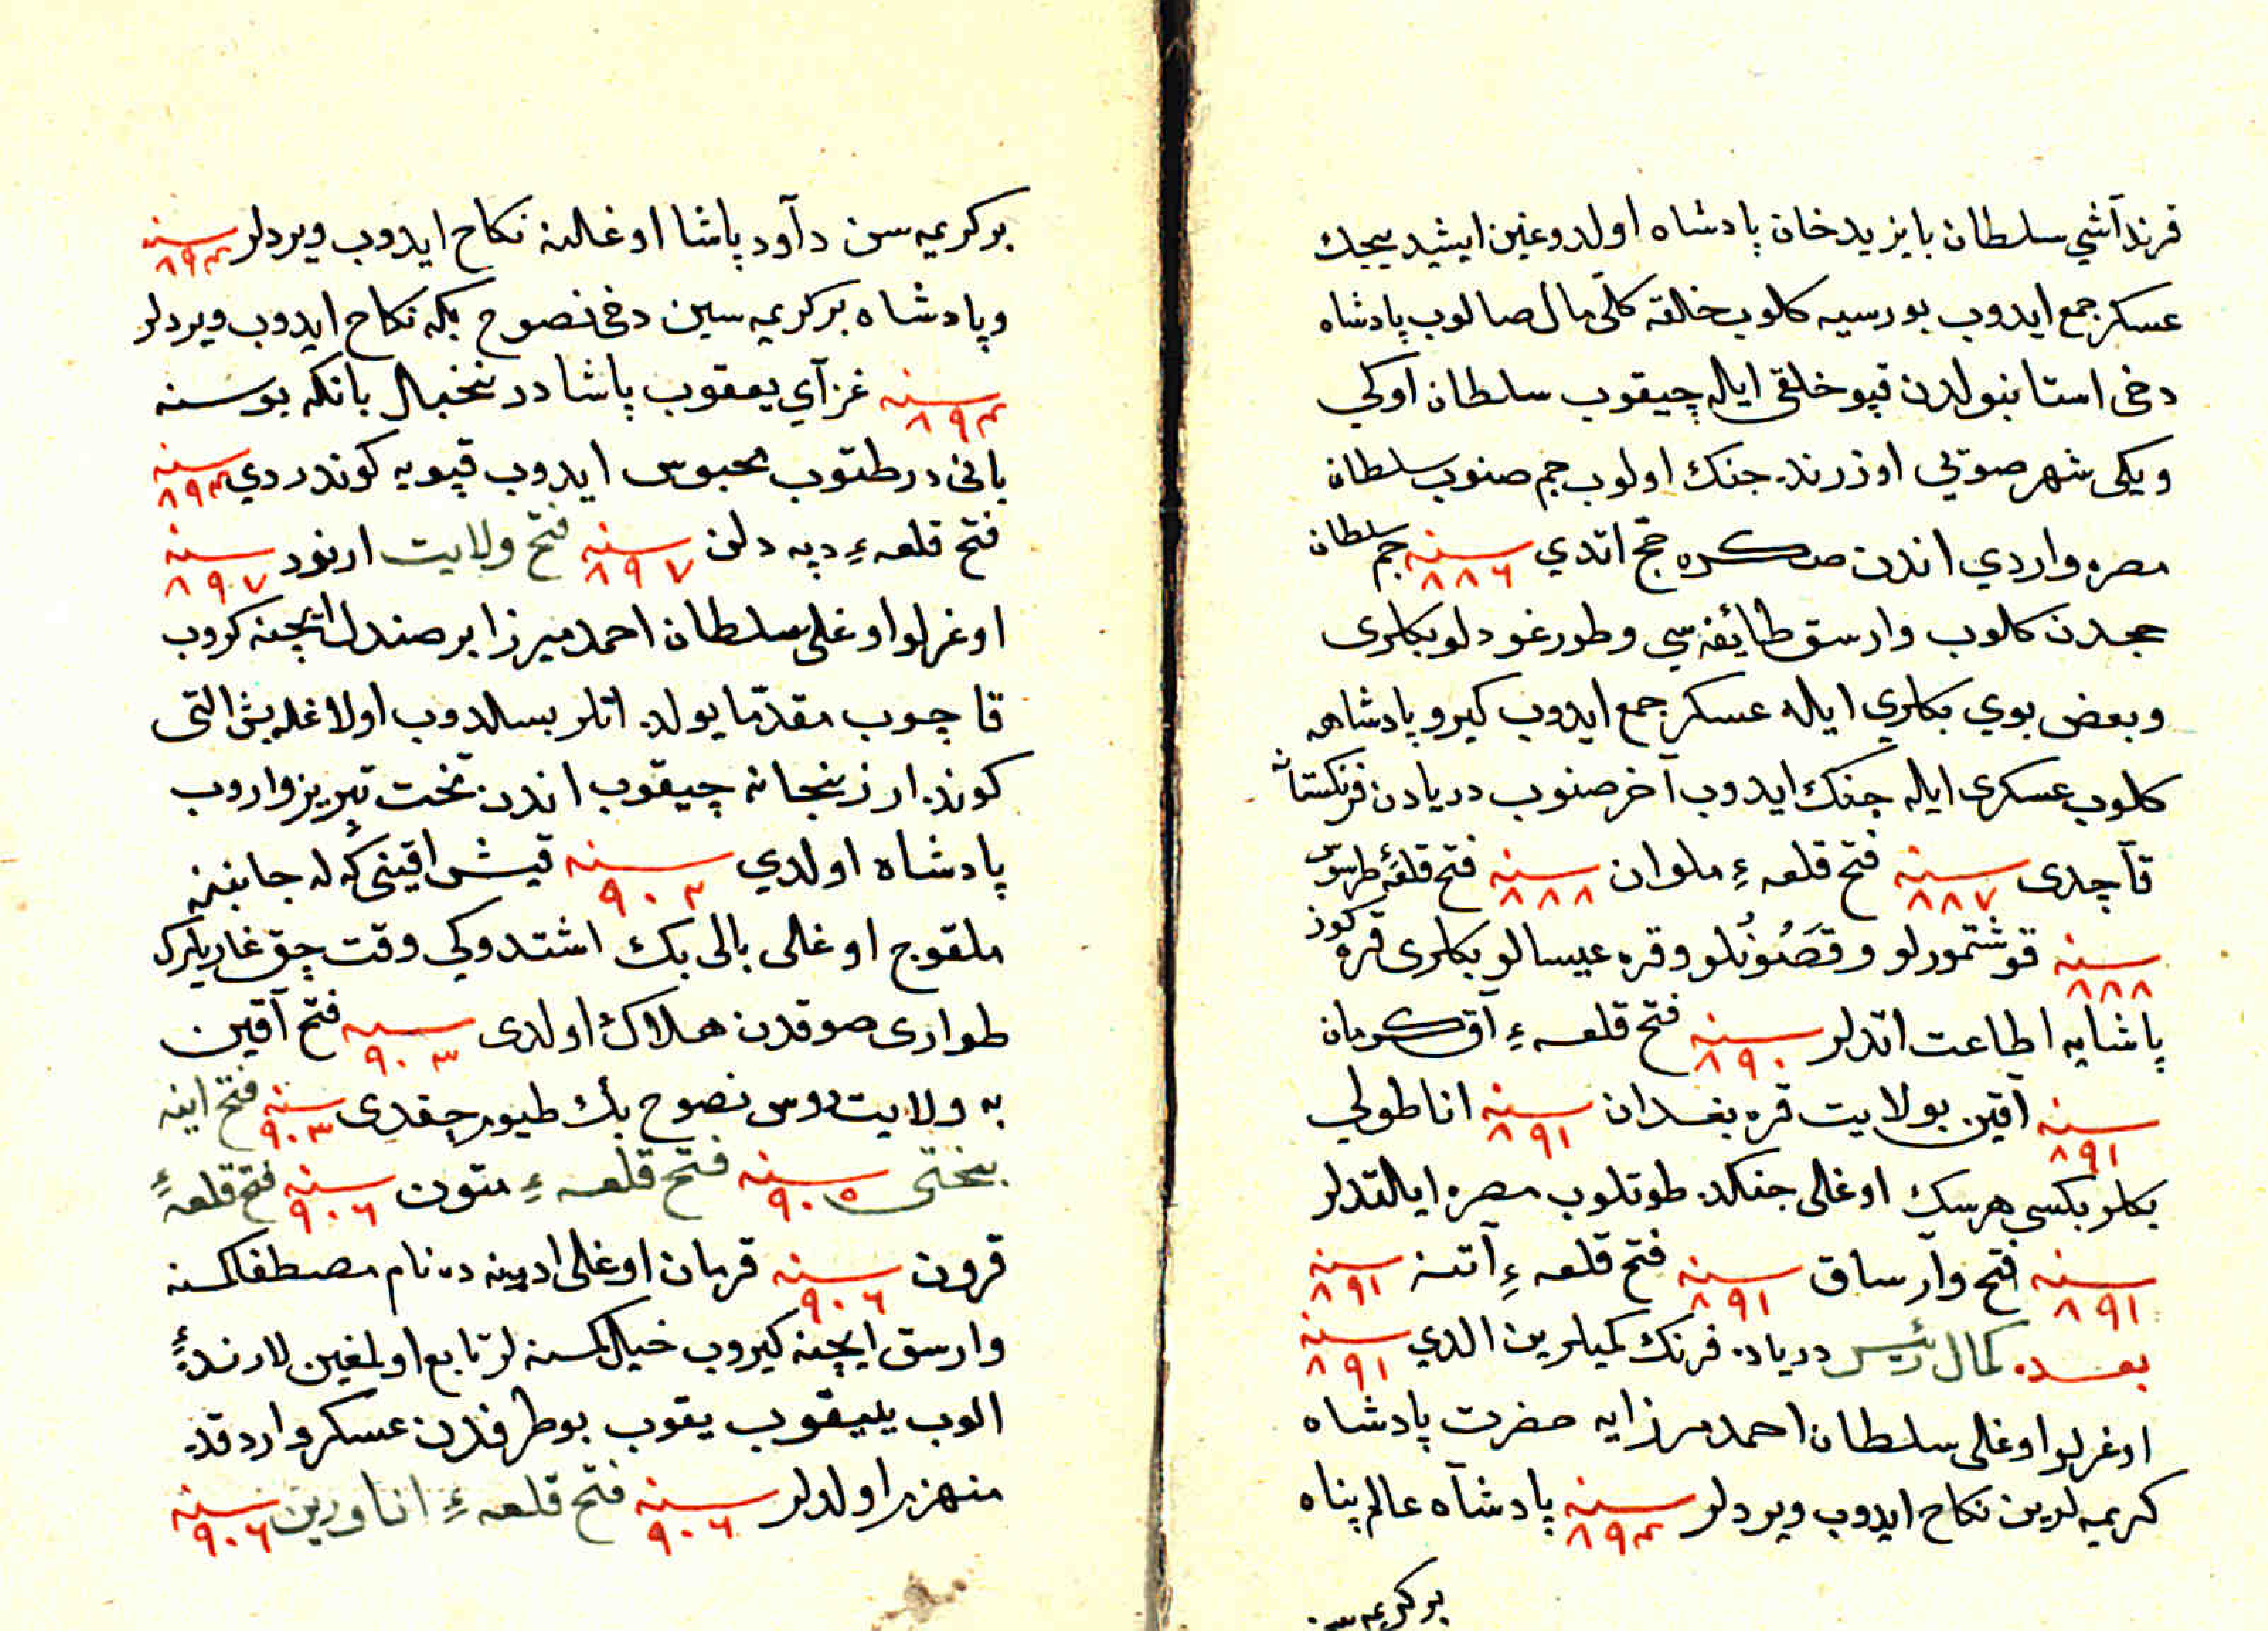 قرنداشي سلطان بايزيد خان پادشاه اولدوغين ايشيديجك
عسكر جمع ايدوب بورسيه كلوب خلقه كلّی مال صالوب پادشاه
دخی استانبولدن قپو خلقی ايله چيقوب سلطان اوكی
ويكی شهر صويی اوزرنده جنك اولوب جم صنوب سلطان
مصره واردي اندن صكره حج اتدي سنه ٨٨٦ جم سلطان
حجدن كلوب وارسق طائفه سي وطورغودلو بكلری
وبعض بوي بكلري ايله عسكر جمع ايدوب كيرو پادشاهه
كلوب عسكری ايله جنك ايدوب آخر صنوب دريادن فرنكستانه
قاچدی سنه ٨٨٧ فتح قلعهٔ ملوان سنه ٨٨٨ فتح قلعهٔ طرسوس
سنه ٨٨٨ قوشتمورلو وقصُنوُنلو وقره عيسالو بكلری قره كوز
پاشايه اطاعت اتدلر سنه ٨٩٠ فتح قلعهٔ آق كرمان
سنه ٨٩١ آقين بولايت قره بغدان سنه ٨٩١ اناطولي
بكلربكسی هرسك اوغلی جنكده طوتلوب مصره ايلتدلر
سنه ٨٩١ فتح وآرساق سنه ٨٩١ فتح قلعهٔ آتنه سنه ٨٩١
بعده كمال رئيس درياده فرنك كميلرين الدي سنه ٨٩١
اوغرلو اوغلی سلطان احمد مرزايه حضرت پادشاه
كريمه لرين نكاح ايدوب ويردلر سنه ٨٩٤ پادشاه عالم پناه
بركريمه سن
بركريمه سن دآود پاشا اوغلنه نكاح ايدوب ويردلر سنه ٨٩٤
وپادشاه بركريمه سين دخی نصوح بكه نكاح ايدوب ويردلر
سنه ٨٩٤ غزآي يعقوب پاشا در نخبال بانكه بو سنه
بانی در طتوب محبوس ايدوب قپويه كوندردي سنه ٨٩٤
فتح قلعهٔ دپه دلن سنه ٨٩٧ فتح ولايت ارنود سنه ٨٩٧
اوغرلو اوغلی سلطان احمد ميرزا بر صندل ايچنه كروب
قاچوب مقدّما يولده اتلر بسلدوب اولاغله بش التی
كونده ارزنجانه چيقوب اندن تخت تبريز واروب
پادشاه اولدي سنه ٩٠٢ قيش اقينی كه له جانبنه
ملقوج اوغلی بالی بك اشتدوكی وقت چق غازيلرك
طواری صوقدن هلاك اولدی سنه ٩٠٣ فتح آقين
به ولايت روس نصوح بك طيور چقدی سنه ٩٠٣ فتح اينه
بختی سنه ٩٠٥ فتح قلعهٔ متون سنه ٩٠٦ فتح قلعهٔ
قرون سنه ٩٠٦ قرمان اوغلی ادرنه ده نام مصطفا كمسنه
وارسق ايچنه كيروب خيال كمسنه لر تابع اولمغين لارنده‌ٔ
الوب يليقوب يقوب بوطرفدن عسكر واردقده
منهزم اولدلر سنه ٩٠٦ فتح قلعهٔ اناورين سنه ٩٠٦